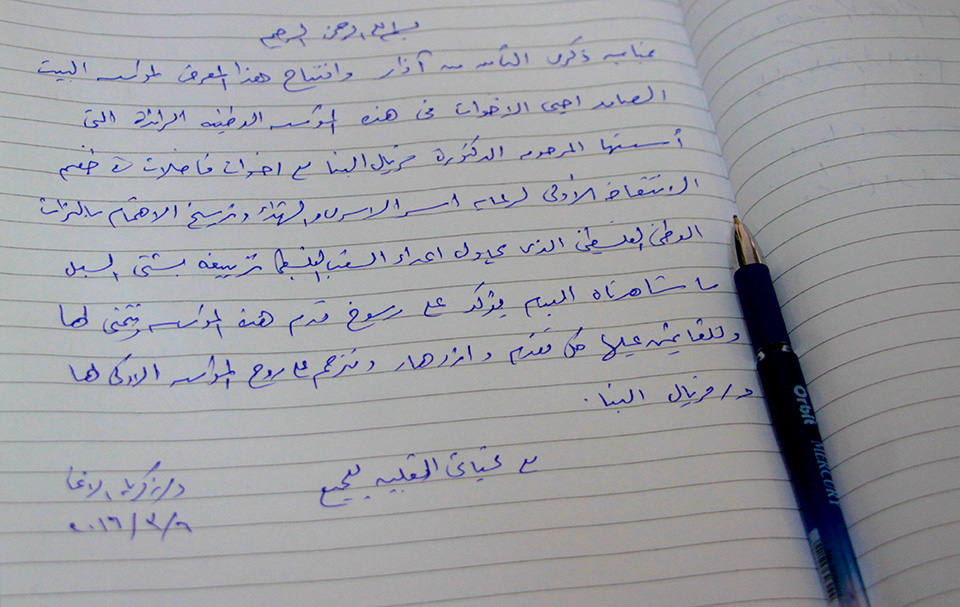 بسم الله الرحمن الرحيم
بمناسبة ذكرى الثامن من آذار وافتتاح هذا المعرض لمؤسسه البيت
الصامد احيي الاخوات في هذه المؤسسه الوطنيه الرائدة التي
أسستها المرحومه الدكتورة فريال البنا مع اخوات فاضلات في خضم
الانتفاضة الأولى لرعايه اسر الاسرى والشهداء وترسيخ الاهتمام بالتراث
الوطني الفلسطيني الذي يحاول اعداء الشعب الفلسطيني تزييفه بشتى السبل
ما شاهدناه اليوم يؤكد على رسوخ قدم هذه المؤسسه ونتمنى لها
وللقائمين عليها كل تقدم وازدهار ونترحم على روح المؤسسه الاولى لها
د. فريال البنا.
مع تحياتي القلبيه للجميع
د. زكريا الاغا
٢٠١٦/٣/٨
Orbit MERCURY